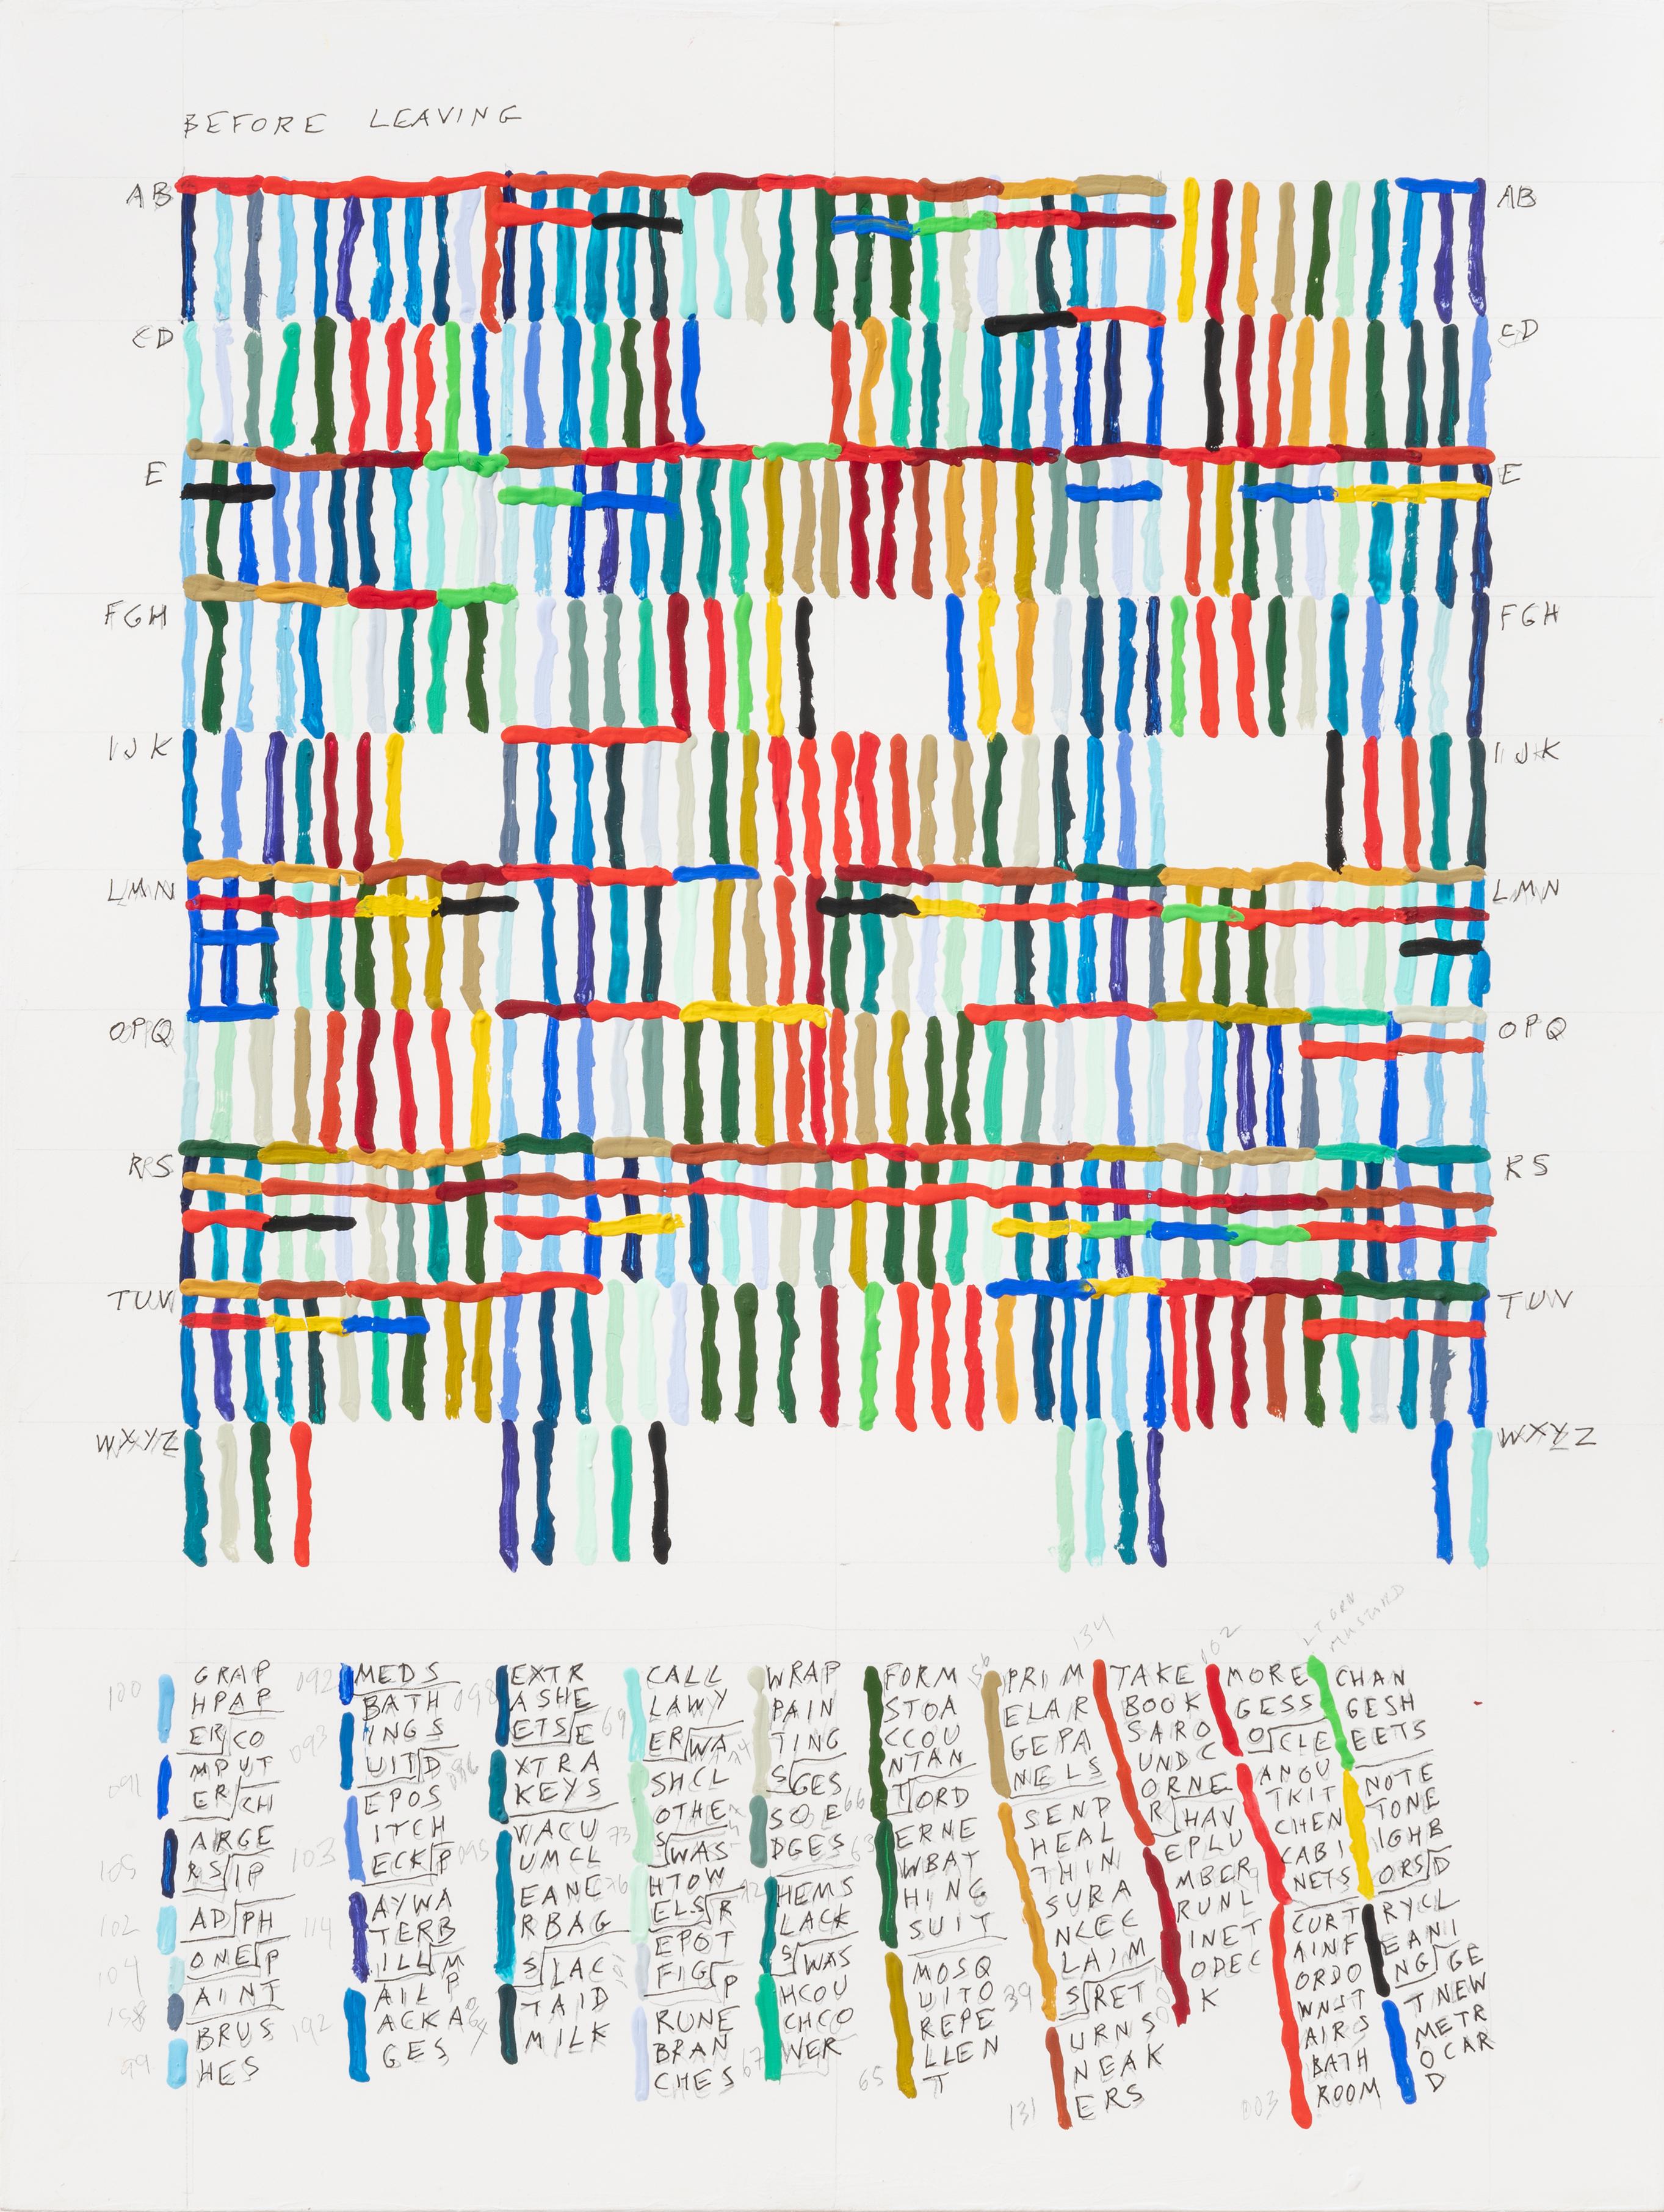 BEFORE LEAVING
AB AB
CD CD
E E
FGH FGH
IJK IJK
LMN LMN
OPQ OPQ
RS RS
TUV TUV
WXYZ WXYZ
100
GRAP
HPAP
ER CO
091
MPUT
ER CH
105
ARGE
RS IP
102
AD PH
104
ONE P
AINT
158
BRUS
99
HES
092
MEDS
BATH
093
INGS
UIT D
EPOS
103
ITCH
ECK P
114
AYWA
TERB
ILL M
AIL P
192
ACKA
GES
098
EXTR
ASHE
ETS E
096
XTRA
KEYS
VACU
095
UMCL
EANE
RBAG
S LAC
TAID
MILK
CALL
69
LAWY
ER WA
SHCL
OTHE
73
S WAS
76
HTOW
ELS R
EPOT
FIG P
RUNE
BRAN
CHES
WRAP
PAIN
74
TING
S GES
SOE
DGES
72
HEMS
LACK
S WAS
HCOU
CHCO
67
VER
FORM
STOA
CCOU
NTAN
66
T ORD
63
ERNE
WBAT
HING
SUIT
MOSQ
UITO
REPE
LLEN
65
T
56
PRIM
ELAR
GEPA
NELS
SEND
HEAL
THIN
SURA
NCEC
LAIM
39
S RET
URNS
NEAK
131
ERS
134
TAKE
BOOK
SARO
UNDC
ORNE
R HAV
EPLU
MBER
RUNL
INET
ODEC
K
102
MORE
GESS
O CLE
ANOU
TKIT
CHEN
CABI
NETS
CURT
AINF
ORDO
WNST
AIRS
BATH
003
ROOM
LT GRN
MUSTARD
CHAN
GESH
EETS
NOTE
TONE
IGHB
ORS D
RYCL
EANI
NG GE
T NEW
METR
OCAR
D